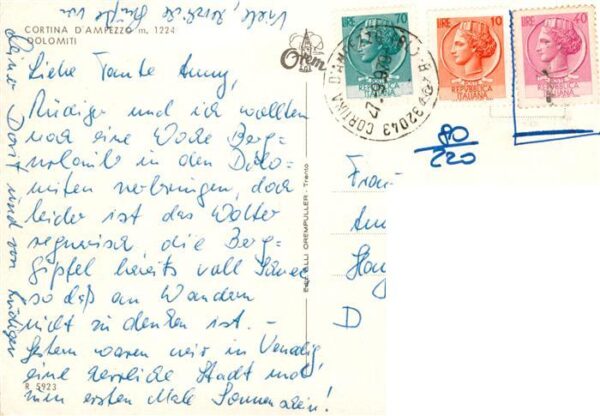 CORTINA D'AMPEZZO m. 1224
DOLOMITI
Liebe Tante Anny,
Rüdiger und ich wollten
noch eine Woche Berg-
urlaub in den Dolo-
miten verbringen, doch
leider ist das Wetter
regnerisch, die Berg-
gipfel bereits voll Schnee
so daß an Wandern
nicht zu denken ist. –
Gestern waren wir in Venedig
eine herrliche Stadt und
zum ersten Male Sonnenschein!
Viele, herzliche Grüße von
Deiner Dorit und von Rüdiger
R 5923
Orem
F.LLI OREMPULLER - Trento
LIRE 70
REPUBBLICA
ITALIANA
LIRE 10
REPUBBLICA
ITALIANA
LIRE 40
REPUBBLICA
ITALIANA
32043 CORTINA D'AM
80
220
Frau
D